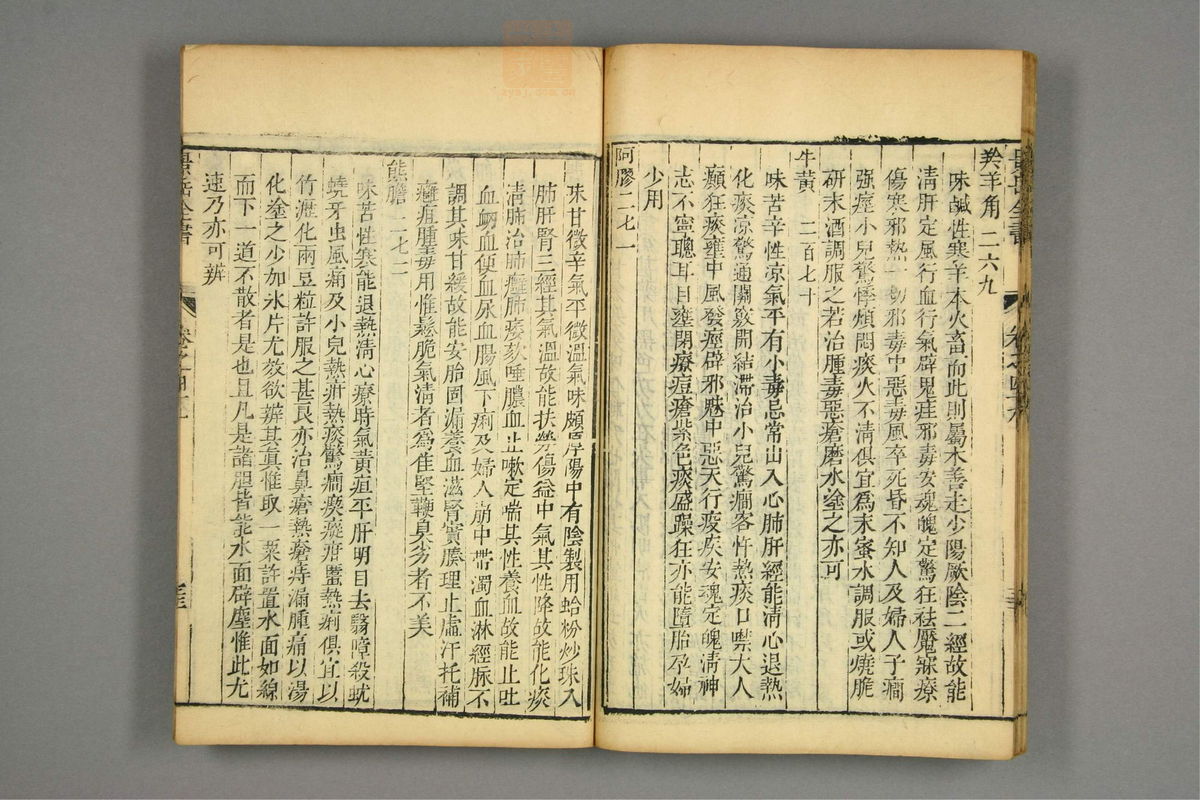 羚羊角 二六九
味鹹性寒羊本火畜而此則屬木善走少陽厥陰二經故能
清肝定風行血行氣辟鬼疰邪毒安魂魄定驚狂祛魘寐療
傷寒邪熱一切邪毒中惡毒風卒死昏不知人及婦人子癇
强痙小兒驚悸煩悶痰火不清俱宜爲末蜜水調服或燒脆
研末酒調服之若治腫毒惡瘡磨水塗之亦可
牛黄 二百七十
味苦辛性涼氣平有小毒忌常山入心肺肝經能清心退熱
化痰凉驚通關竅開結滯治小兒驚癇客忤熱痰口噤大人
癲狂痰壅中風發痙辟邪魅中惡天行疫疾安魂定魄清神
志不寧聰耳目壅閉療痘瘡紫色痰盛躁狂亦能墮胎孕婦
少用
阿膠 二七一
味甘微辛氣平微溫氣味頗厚陽中有陰製用蛤粉炒珠入
肺肝腎三經其氣溫故能扶勞傷益中氣其性降故能化痰
清肺治肺癰肺痿欬唾膿血止嗽定喘其性養血故能止吐
血衂血便血尿血腸風下痢及婦人崩中帶濁血淋經脈不
調其味甘緩故能安胎固漏養血滋腎實腠理止虛汗托補
癰疽腫毒用惟鬆脆氣清者爲佳堅鞕臭劣者不美
熊膽 二七二
味苦性寒能退熱清心療時氣黃疸平肝明目去翳障殺蚘
蟯牙虫風痛及小兒熱疳熱痰驚癇瘈瘲疳䘌熱痢俱宜以
竹瀝化兩豆粒許服之甚良亦治鼻瘡熱瘡痔漏腫痛以湯
化塗之少加氷片尤效欲辨其真惟取一粟許置水面如線
而下一道不散者是也且凡是諸膽者能水面辟塵惟此尤
速乃亦可辨
景岳全書
卷之四十九